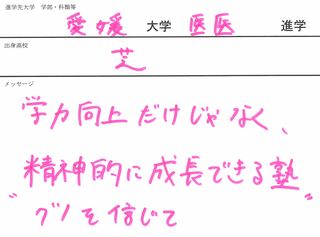 進学先大学 学部・科類等
愛媛 大学 医医 進学
出身高校
芝
メッセージ
学力向上だけじゃなく、
精神的に成長できる塾
"グノを信じて"